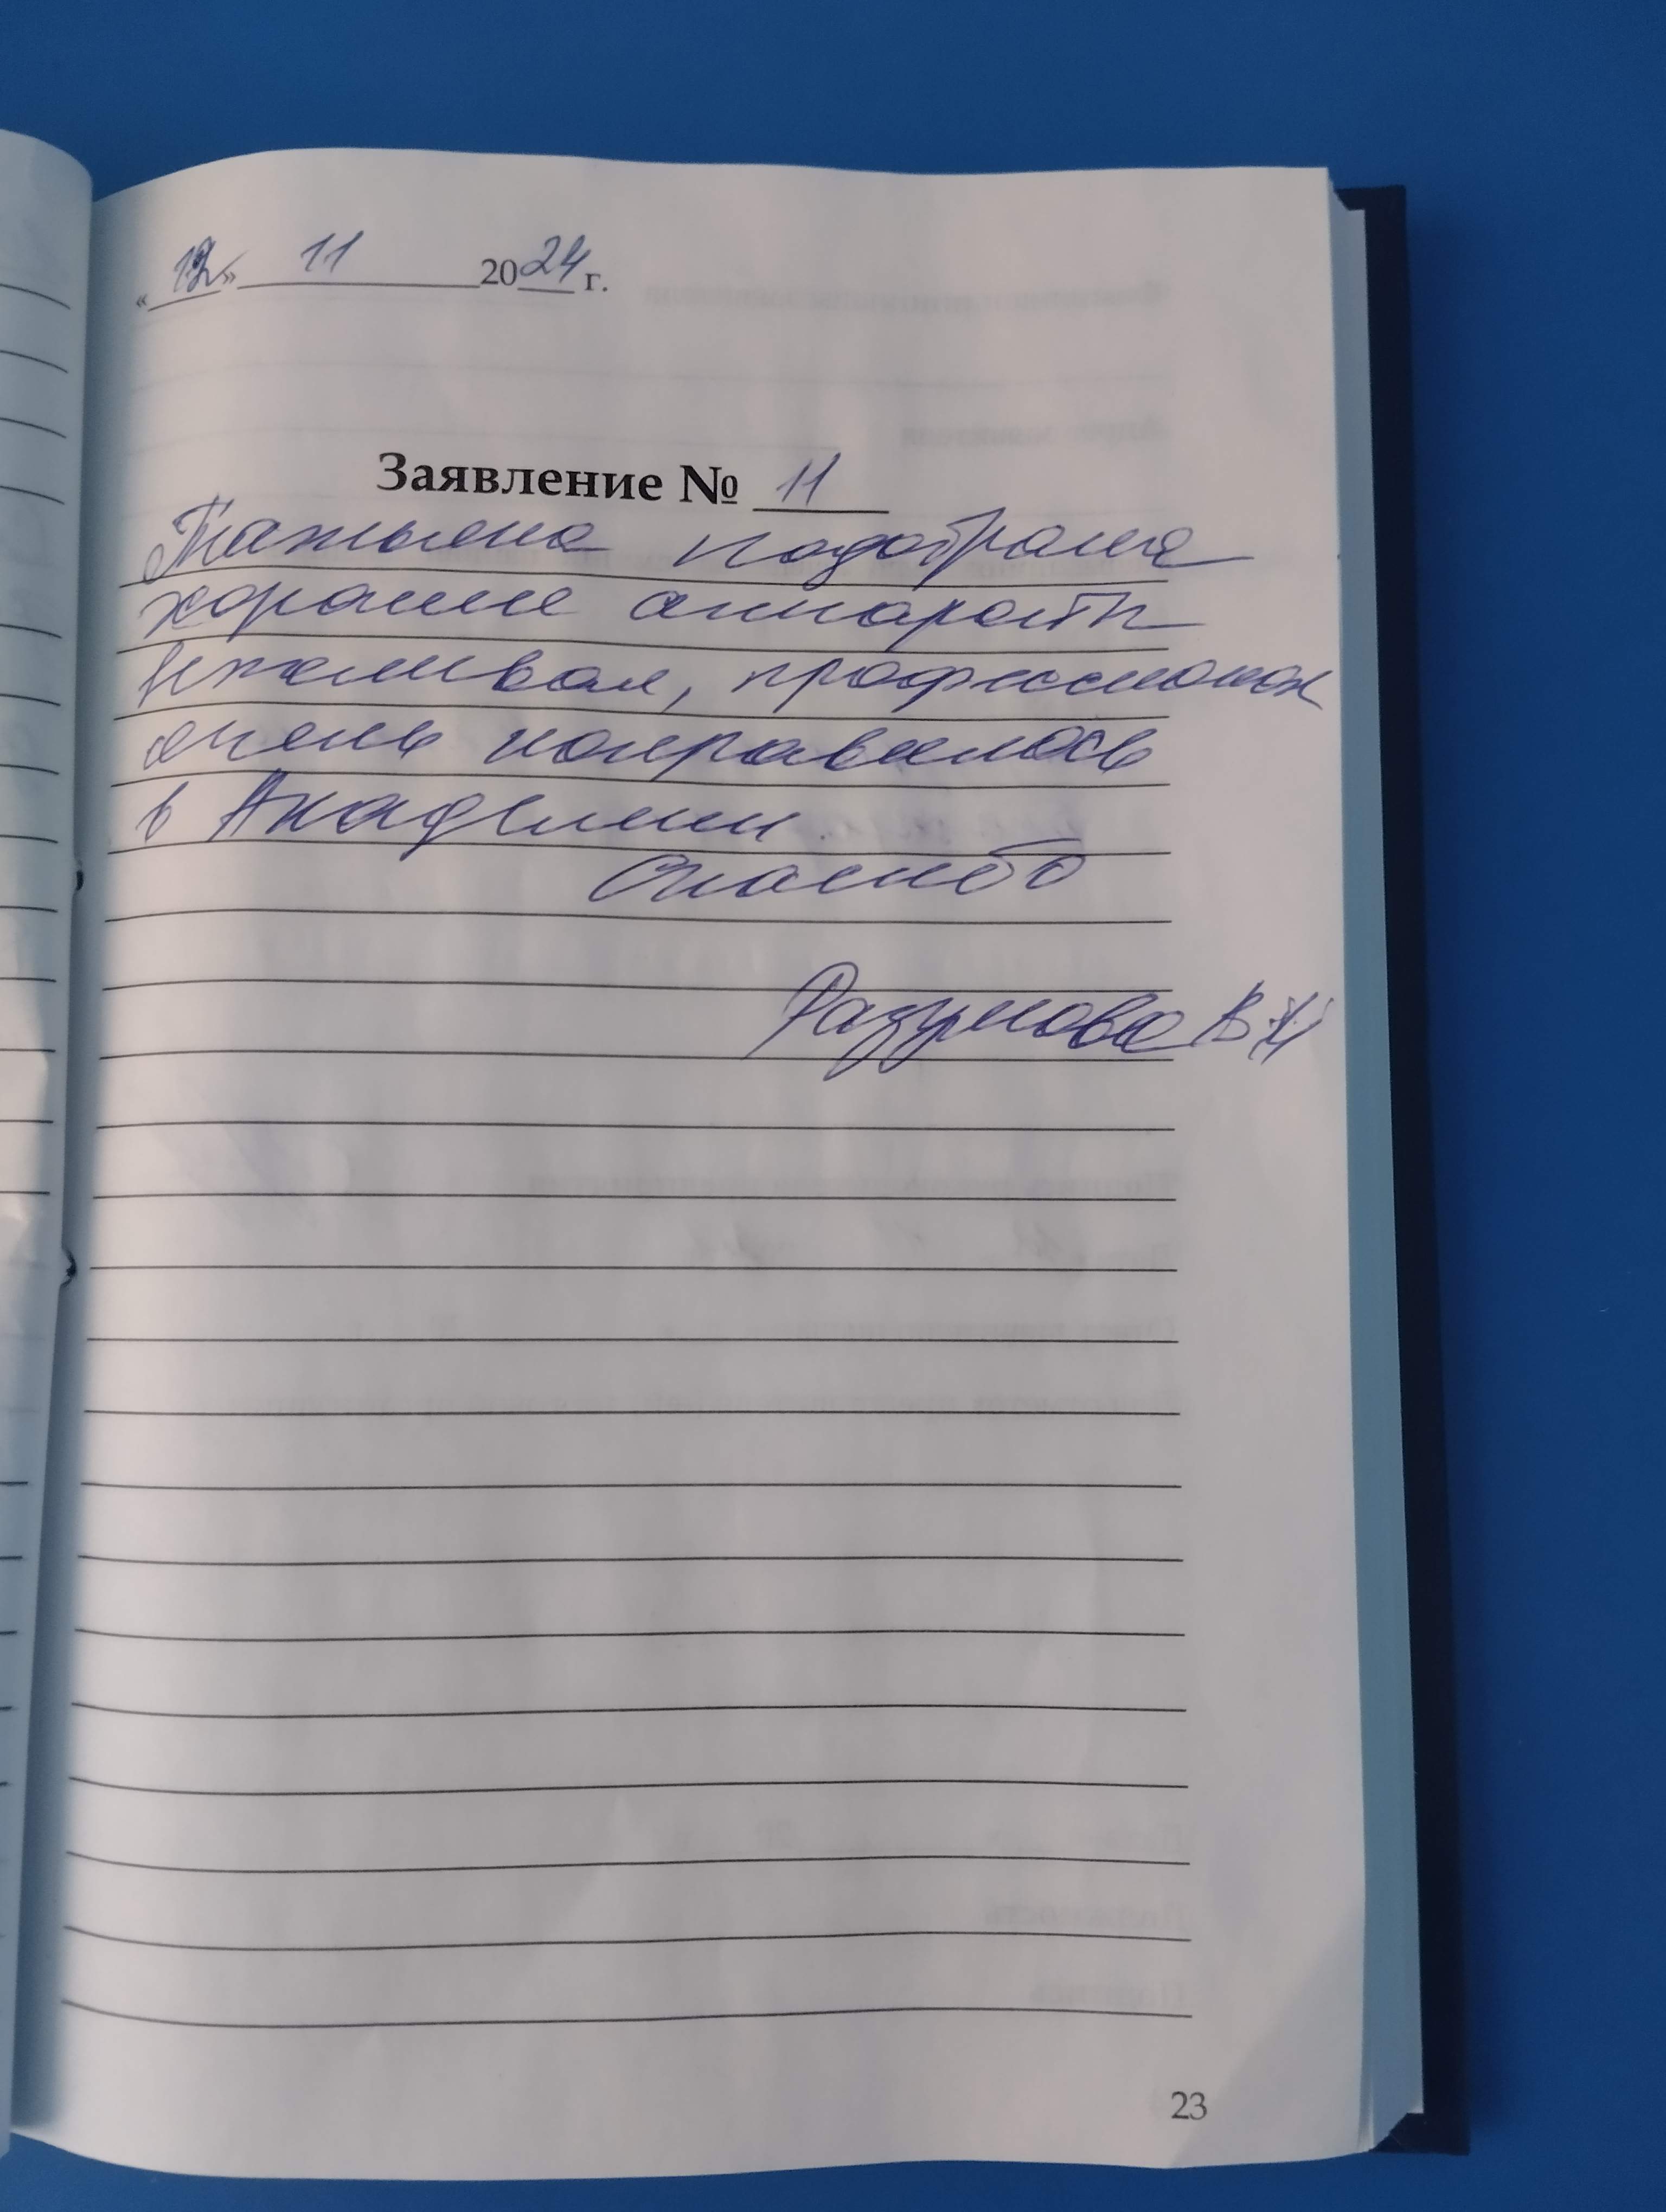 «12» 11 2024 г.
Заявление № 11
Татьяна подобрала
хорошие аппараты
вежливая, профессионал
очень понравилось
в Академии.
Спасибо
Разумова В.И
23